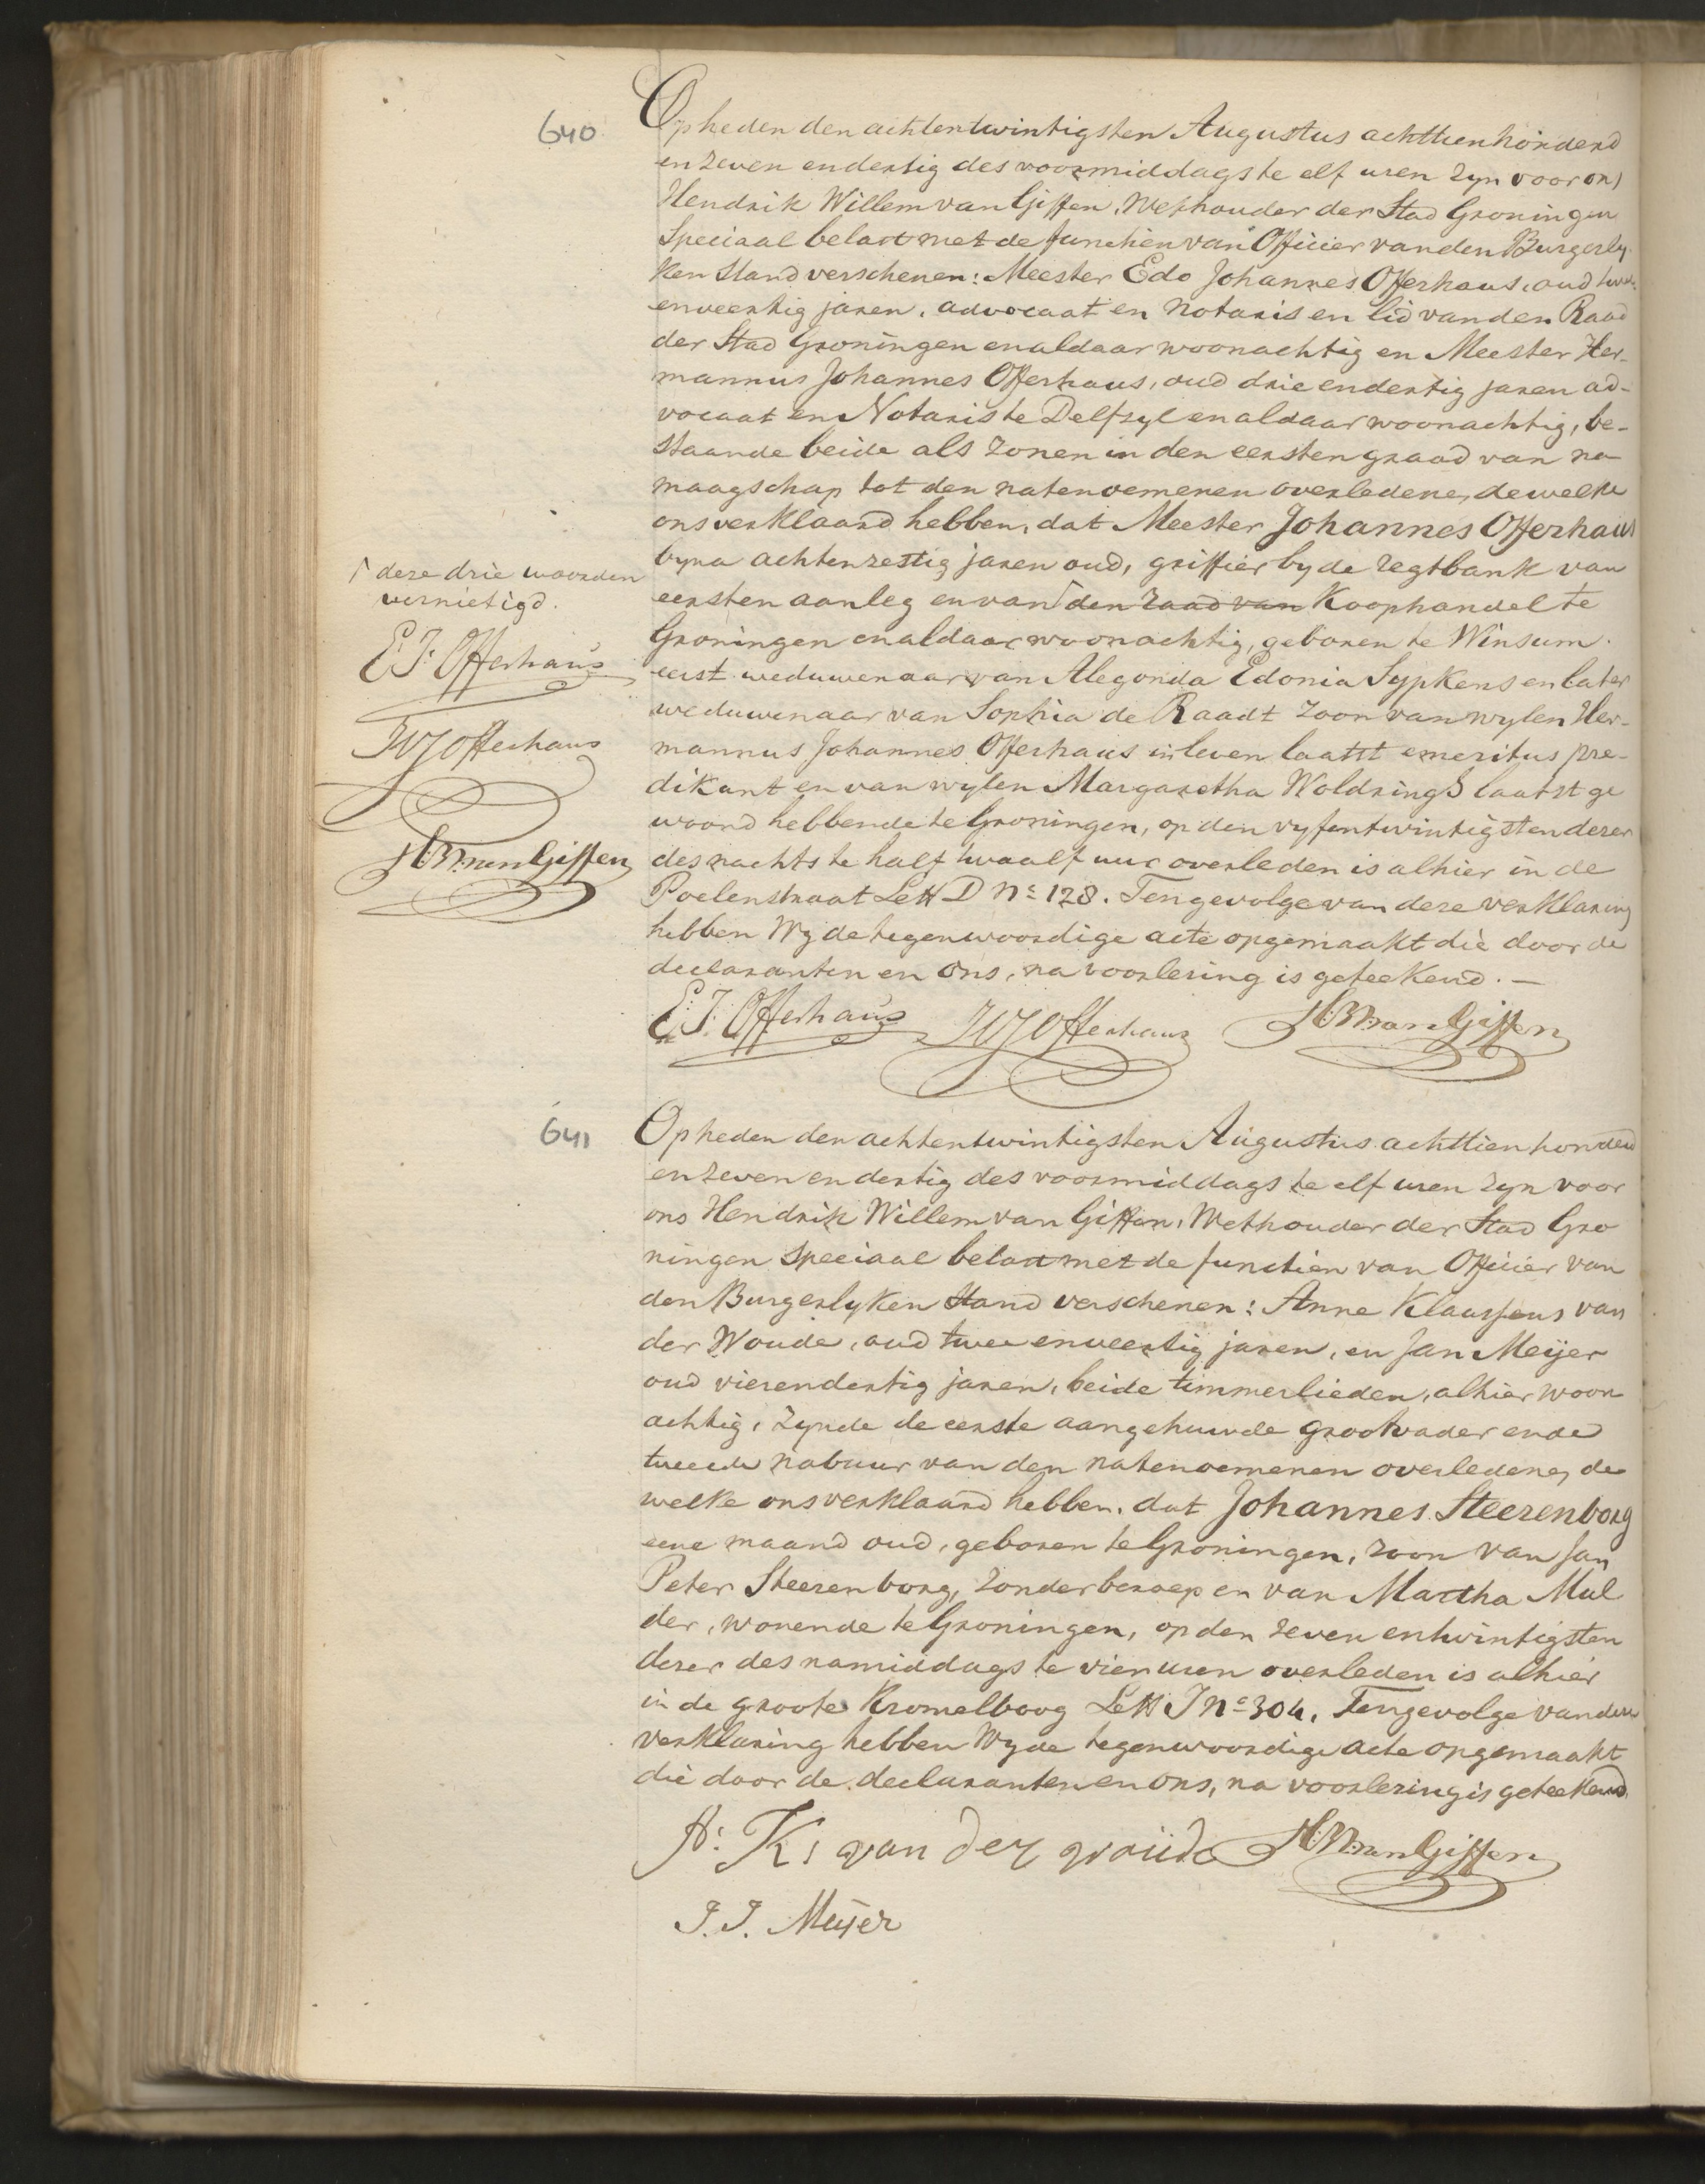 640
Op heden den achtentwintigsten Augustus achttienhonderd
en zeven en dertig des voormiddags te elf uren zyn voor ons
Hendrik Willem van Giffen, Wethouder der Stad Groningen
Speciaal belast met de functien van Officier van den Burgerly-
ken Stand verschenen: Meester Edo Johannes Offerhaus, oud twee
enveertig jaren, advocaat en Notaris en lid van den Raad
der Stad Groningen en aldaar woonachtig en Meester Her-
mannus Johannes Offerhaus, oud drie en dertig jaren ad-
vocaat en Notaris te Delfzyl en aldaar woonachtig, be-
staande beide als zonen in den eersten graad van na-
maagschap tot den natenoemenen overledene, dewelke
ons verklaard hebben, dat Meester Johannes Offerhaus
byna achtenzestig jaren oud, griffier by de regtbank van
eersten aanleg en van den raad van Koophandel te
Groningen en aldaar woonachtig, geboren te Winsum
eerst weduwenaar van Alegonda Edonia Sypkens en later
weduwenaar van Sophia de Raadt zoon van wylen Her-
mannus Johannes Offerhaus in leven laatst emeritus pre-
dikant en van wylen Margaretha Woldrings laatst ge
woond hebbende te Groningen, op den vyfentwintigsten dezer
des nachts te half twaalf uur overleden is alhier in de
Poelenstraat Lett D No 128. Tengevolge van deze verklaring
hebben Wy de tegenwoordige acte opgemaakt die door de
declaranten en ons, na voorlezing is geteekend. —
deze drie woorden
vernietigd.
E. J. Offerhaus
HJ Offerhaus
HW van Giffen
E. J. Offerhaus HJ Offerhaus HW van Giffen
641
Op heden den achtentwintigsten Augustus achttienhonderd
en zeven en dertig des voormiddags te elf uren zyn voor
ons Hendrik Willem van Giffen, Wethouder der Stad Gro
ningen speciaal belast met de functien van Officier van
den Burgerlyken Stand verschenen: Anne Klaassens van
der Woude, oud twee enveertig jaren, en Jan Meijer
oud vierendertig jaren, beide timmerlieden, alhier woon
achtig, zynde de eerste aangehuwde grootvader en de
tweede nabuur van den natenoemenen overledene, de
welke ons verklaard hebben, dat Johannes Steerenborg
eene maand oud, geboren te Groningen, zoon van Jan
Peter Steerenborg, zonder beroep en van Martha Mul
der, wonende te Groningen, op den zeven entwintigsten
dezer des namiddags te vier uren overleden is alhier
in de groote Kromelboog Lett J No 304. Tengevolge van deze
verklaring hebben Wy de tegenwoordige acte opgemaakt
die door de declaranten en ons, na voorlezing is geteekend.
A: K: van der woude HW van Giffen
J. J. Meijer